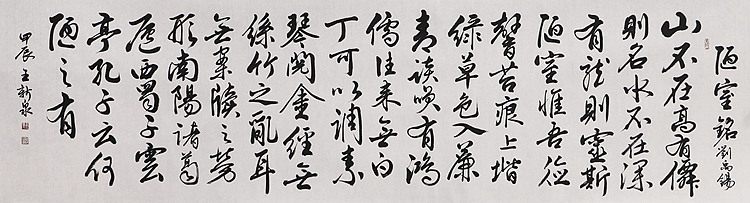 陋室銘 劉禹錫
山不在高有僊
則名水不在深
有龍則靈斯
陋室惟吾德
馨苔痕上堦
綠草色入簾
青談咲有鴻
儒往來無白
丁可以調素
琴閱金經無
絲竹之亂耳
無案牘之勞
形南陽諸葛
廬西蜀子雲
亭孔子云何
陋之有
甲辰 王新泉